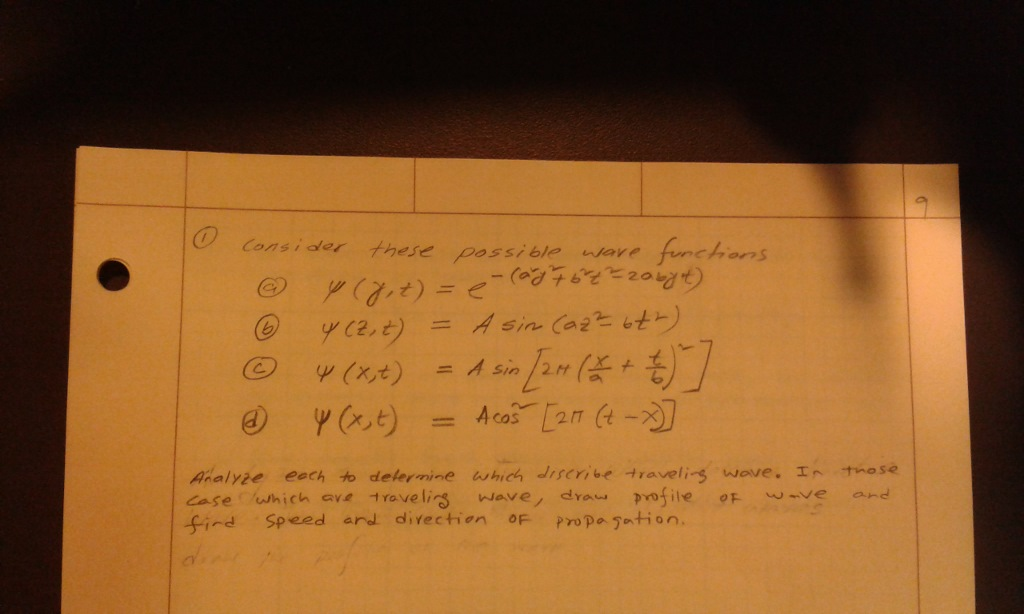 9
① Consider these possible wave functions
ⓐ ψ(y,t) = e^-(a²y²+b²t²-2abyt)
ⓑ ψ(z,t) = A sin (az²-bt²)
ⓒ ψ(x,t) = A sin [2π (x/a + t/b)²]
ⓓ ψ(x,t) = A cos² [2π (t-x)]
Analyze each to determine which discribe traveling wave. In those
case which are traveling wave, draw profile of wave and
find speed and direction of propagation.